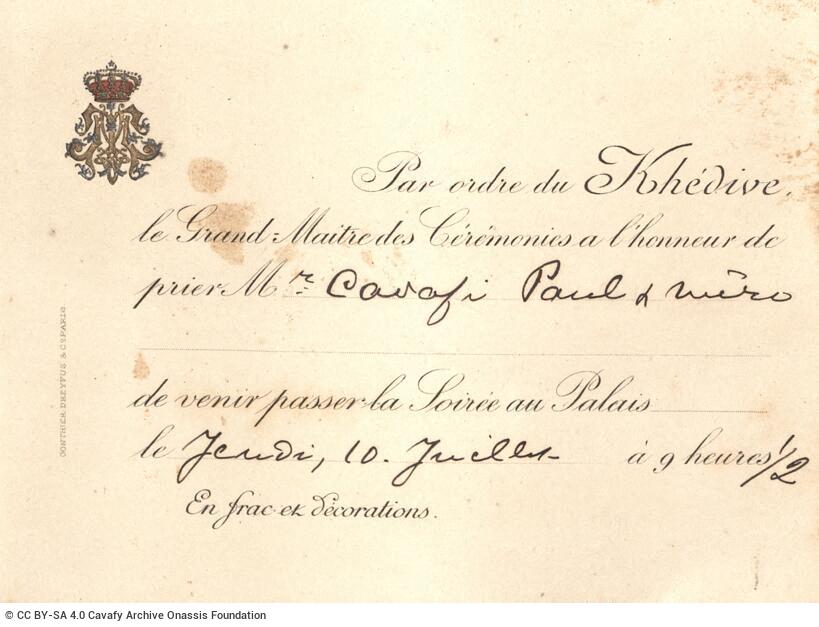 Par ordre du Khédive,
le Grand-Maître des Cérémonies a l'honneur de
prier Mr Cavafi Paul & mère
de venir passer la Soirée au Palais
le Jeudi, 10. Juillet à 9 heures 1/2
En frac et décorations.
GONTHIER DREYFUS & Cº PARIS
© CC BY-SA 4.0 Cavafy Archive Onassis Foundation